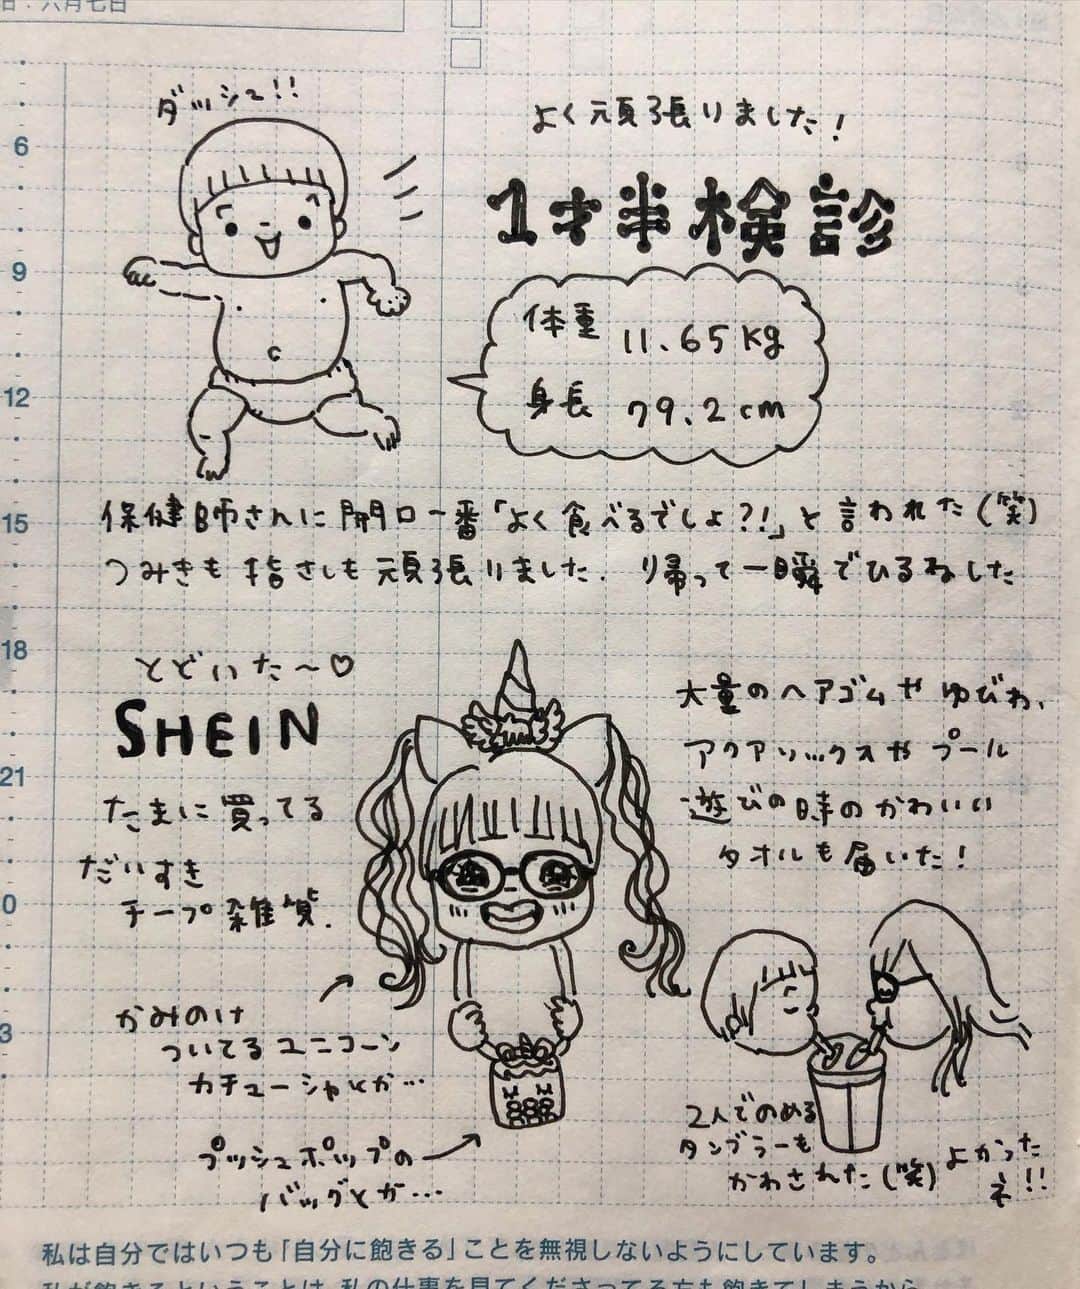 六月七日
ダッシュ!!
よく頑張りました!
1才半検診
体重 11.65kg
身長 79.2cm
保健師さんに開口一番「よく食べるでしょ?!」と言われた(笑)
つみきも指さしも頑張りました. り帰って一瞬でひるねした
とどいた〜♡
SHEIN
たまに買ってる
だいすき
チープ雑貨.
かみのけ
ついてるユニコーン
カチューシャとか…
プッシュポップの
バッグとか…
大量のヘアゴムやゆびわ、
アクアソックスやプール
遊びの時のかわいい
タオルも届いた!
2人でのめる
タンブラーも
かわされた(笑)
よかった
ネ!!
6
9
12
15
18
21
0
3
私は自分ではいつも「自分に飽きる」ことを無視しないようにしています。
私が飽きるということは、私の仕事を見てくださってる方も飽きてしまうから